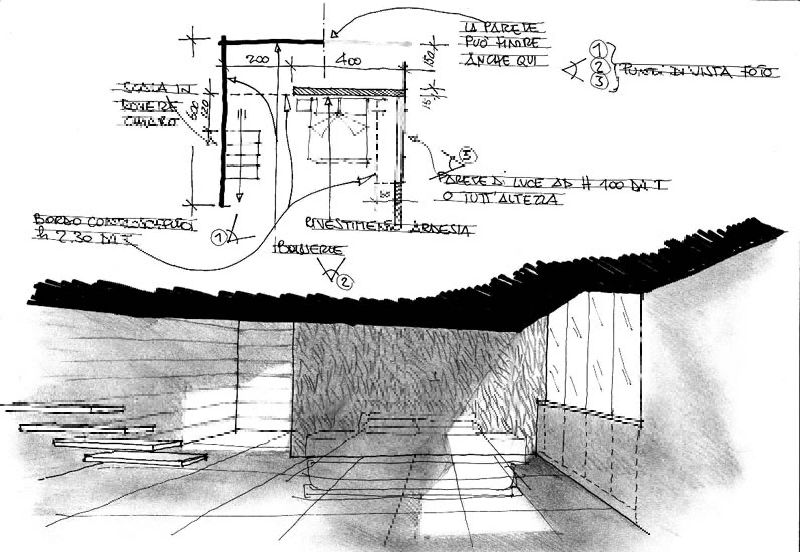 LA PARETE
PUÒ FINIRE
ANCHE QUI
1
2
3
PUNTI DI VISTA FOTO
200
400
150
15
SCALA IN
ROVERE
CHIARO
600
120
3
PARETE DI LUCE AD H 100 DA T
O TUTT'ALTEZZA
BORDO CONTROSOFFITTO
h 2.30 DA T
1
RIVESTIMENTO ARDESIA
BOISERIE
2